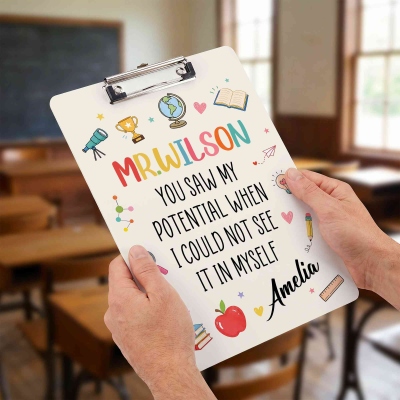 MR.WILSON
YOU SAW MY
POTENTIAL WHEN
I COULD NOT SEE
IT IN MYSELF
Amelia